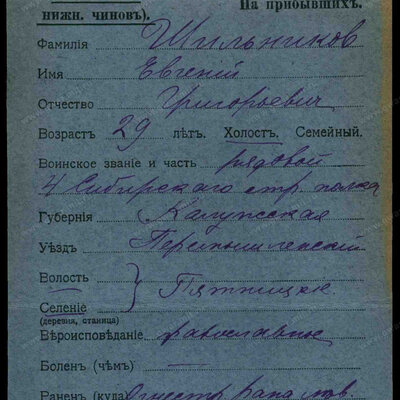 нижн. чиновъ).
На прибывшихъ.
Фамилія Шильников
Имя Евгеній
Отчество Григорьевич
Возрастъ 29 лѣтъ. Холостъ, Семейный.
Воинское званіе и часть рядовой
4 Сибирскаго стр. полка
Губернія Калужская
Уѣздъ Перемышленскій
Волость
Пятницк.
Селеніе
(деревня, станица)
Вѣроисповѣданіе православн
Боленъ (чѣмъ)
Раненъ (куда) Огнестр. рана